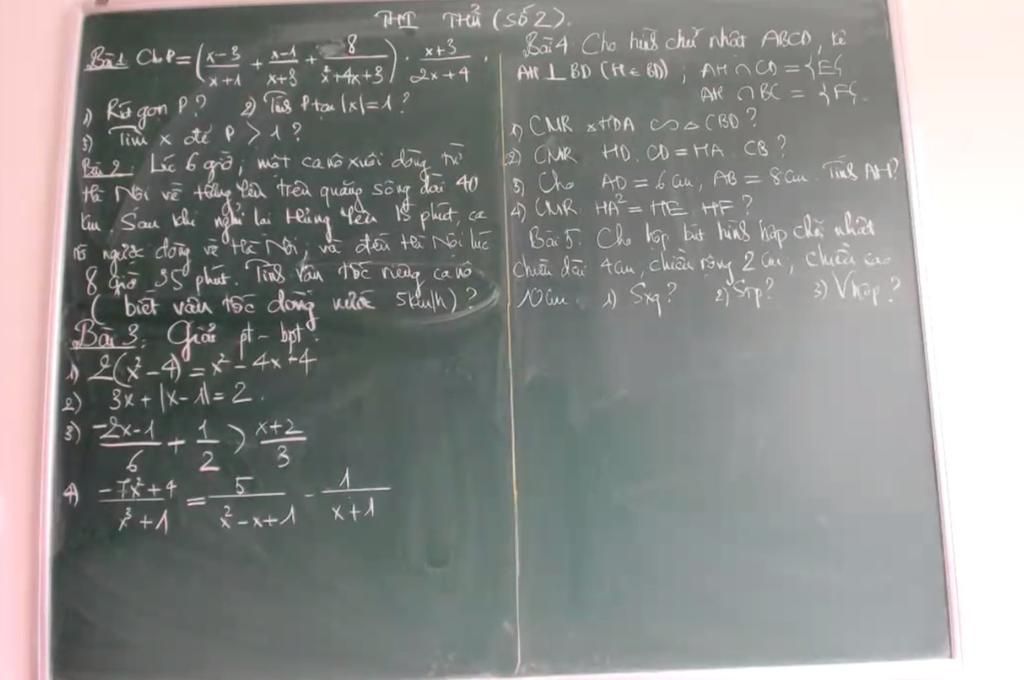 THI THỬ (SỐ 2).
Bài 1 Cho P = (x-3/x+1 + x-1/x+3 + 8/x²+4x+3) . x+3/2x+4 .
1) Rút gọn P ? 2) Tính P tại |x| = 1 ?
3) Tìm x để P > 1 ?
Bài 2. Lúc 6 giờ, một ca nô xuôi dòng từ
Hà Nội về Hưng Yên trên quãng sông dài 40
km. Sau khi nghỉ lại Hưng Yên 15 phút, ca
nô ngược dòng về Hà Nội, và đến Hà Nội lúc
8 giờ 35 phút. Tính vận tốc riêng ca nô
( biết vận tốc dòng nước 5km/h) ?
Bài 3: Giải pt - bpt.
1) 2(x²-4) = x² - 4x + 4
2) 3x + |x-1| = 2.
3) -2x-1/6 + 1/2 > x+2/3
4) -7x²+4/x³+1 = 5/x²-x+1 - 1/x+1
Bài 4 Cho hình chữ nhật ABCD, kẻ
AH ⊥ BD (H ∈ BD) ; AH ∩ CD = {E}
AH ∩ BC = {F}.
1) CMR △HDA ∽ △CBD ?
2) CMR HD. CD = HA. CB ?
3) Cho AD = 6cm, AB = 8cm. Tính AH?
4) CMR HA² = HE. HF ?
Bài 5. Cho hộp bút hình hộp chữ nhật
chiều dài 4cm, chiều rộng 2cm, chiều cao
10cm. 1) Sxq? 2) STP? 3) V hộp?